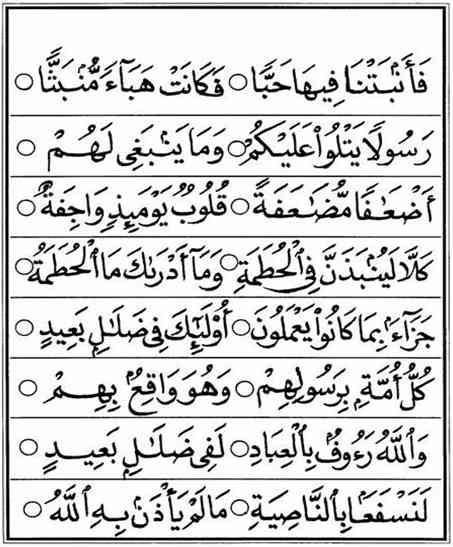 فَأَنۢبَتۡنَا فِيهَا حَبّٗا ○ فَكَانَتۡ هَبَآءٗ مُّنۢبَثّٗا ○
رَسُولٗا يَتۡلُواْ عَلَيۡكُمۡ ○ وَمَا يَنۢبَغِي لَهُمۡ ○
أَضۡعَٰفٗا مُّضَٰعَفَةٗ ○ قُلُوبٞ يَوۡمَئِذٖ وَاجِفَةٌ ○
كَلَّا لَيُنۢبَذَنَّ فِي ٱلۡحُطَمَةِ ○ وَمَآ أَدۡرَىٰكَ مَا ٱلۡحُطَمَةُ ○
جَزَآءَۢ بِمَا كَانُواْ يَعۡمَلُونَ ○ أُوْلَٰٓئِكَ فِي ضَلَٰلِۭ بَعِيدٍ ○
كُلُّ أُمَّةِۭ بِرَسُولِهِمۡ ○ وَهُوَ وَاقِعُۢ بِهِمۡ ○
وَٱللَّهُ رَءُوفُۢ بِٱلۡعِبَادِ ○ لَفِي ضَلَٰلِۭ بَعِيدٍ ○
لَنَسۡفَعَۢا بِٱلنَّاصِيَةِ ○ مَا لَمۡ يَأۡذَنۢ بِهِ ٱللَّهُ ○